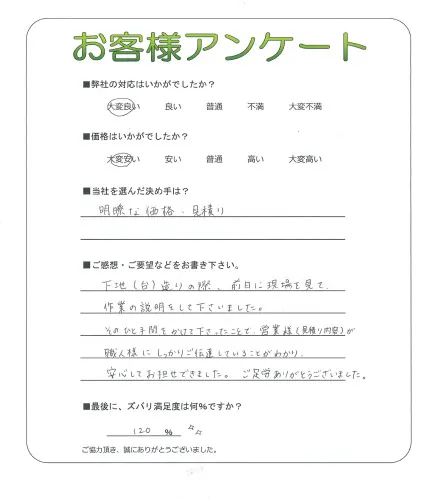 お客様アンケート
■弊社の対応はいかがでしたか？
大変良い 良い 普通 不満 大変不満
■価格はいかがでしたか？
大変安い 安い 普通 高い 大変高い
■当社を選んだ決め手は？
明瞭な価格・見積り
■ご感想・ご要望などをお書き下さい。
下地(台)造りの際、前日に現場を見て、
作業の説明をして下さいました。
そのひと手間をかけて下さったことで、営業様(見積り内容)が
職人様にしっかりご伝達していることがわかり、
安心してお担せできました。ご足労ありがとうございました。
■最後に、ズバリ満足度は何%ですか？
120 %
ご協力頂き、誠にありがとうございました。